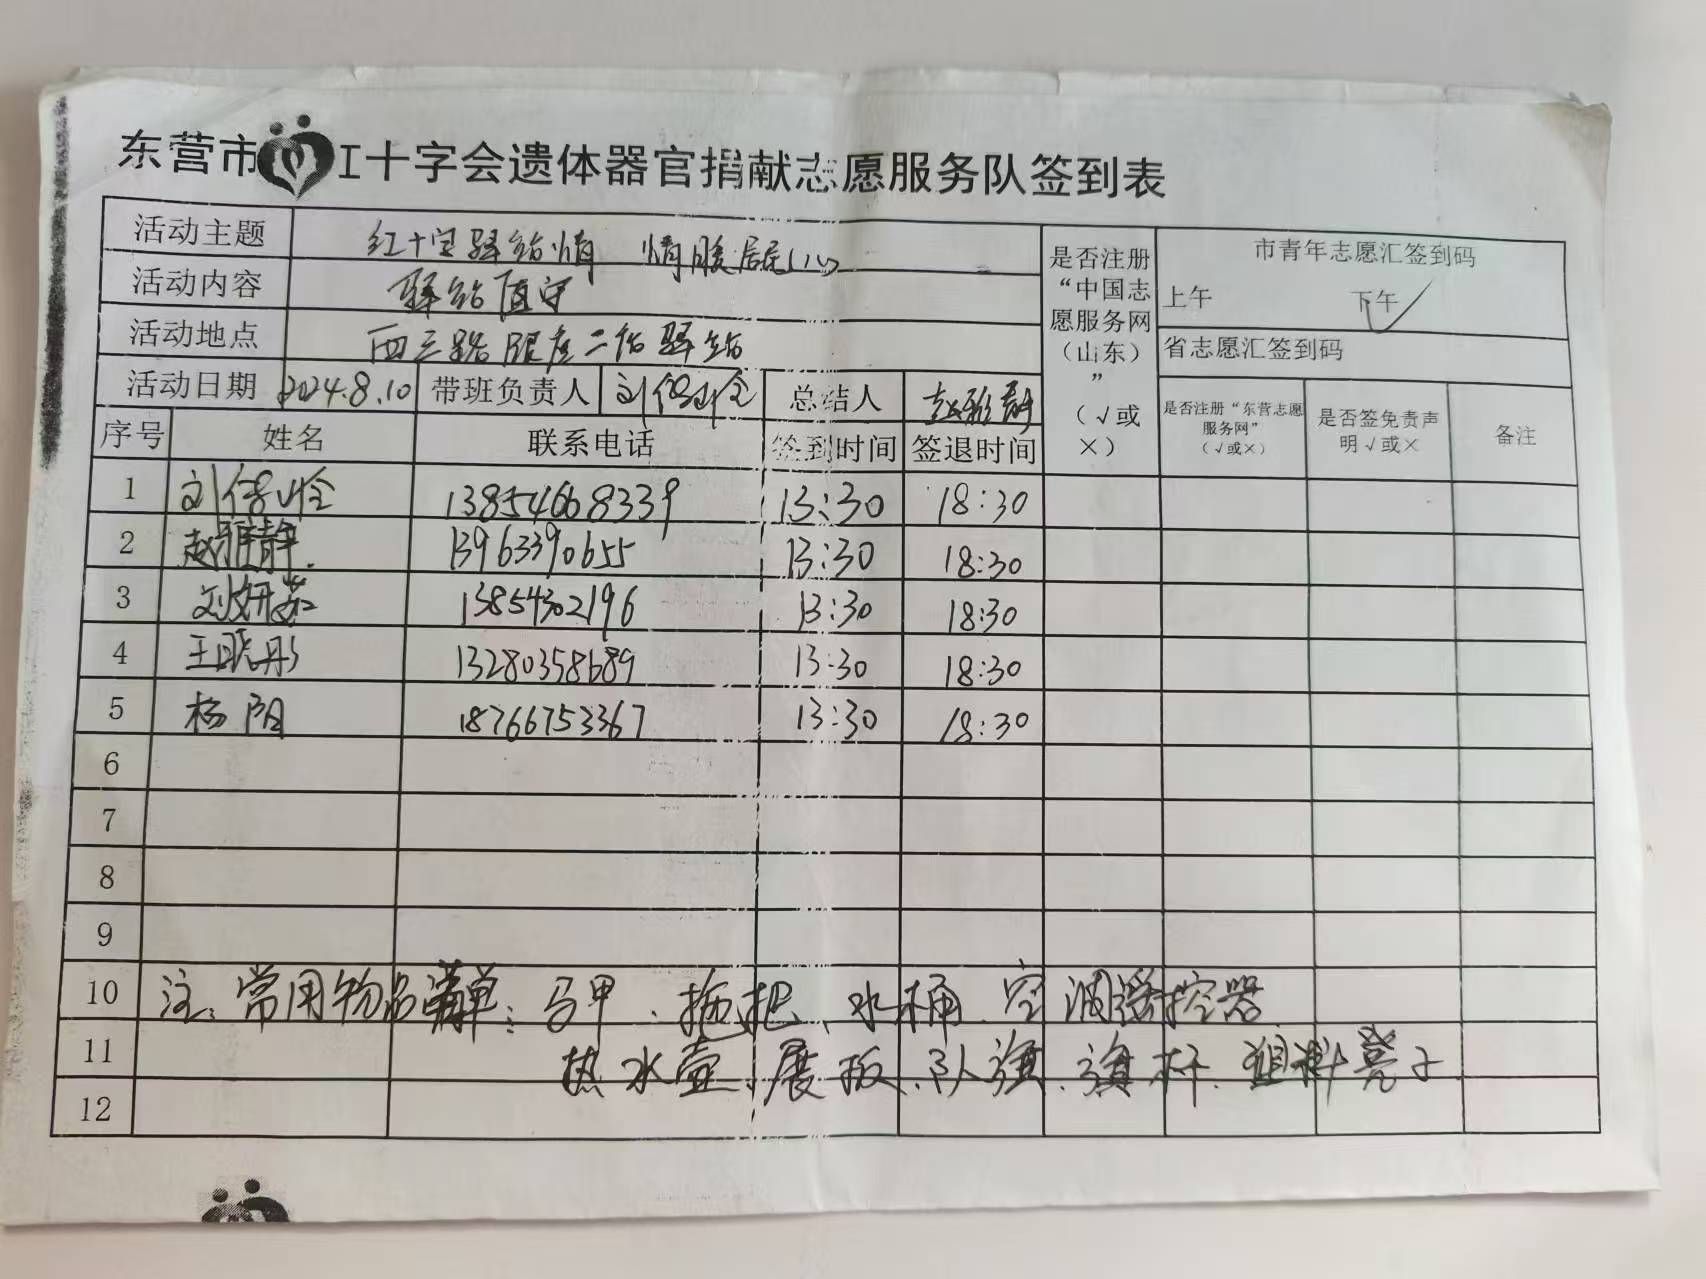 东营市 工十字会遗体器官捐献志愿服务队签到表
活动主题 红十字驿站情 情暖居民心
是否注册“中国志愿服务网（山东）”（√或×）
市青年志愿汇签到码
活动内容 驿站值守
上午 下午 ✓
活动地点 西三路 二 驿站
省志愿汇签到码
活动日期 2024.8.10 带班负责人 刘 总结人 赵雅静
序号 姓名 联系电话 签到时间 签退时间 是否注册“东营志愿服务网”（√或×） 是否签免责声明√或× 备注
1 刘 13854668339 13:30 18:30
2 赵雅静 13963390655 13:30 18:30
3 刘妍 13854302196 13:30 18:30
4 王晓彤 13280358689 13:30 18:30
5 杨阳 18766753367 13:30 18:30
6
7
8
9
10 注：常用物品清单：马甲、拖把、水桶、空调遥控器
11 热水壶、展板、队旗、旗杆、 凳子
12